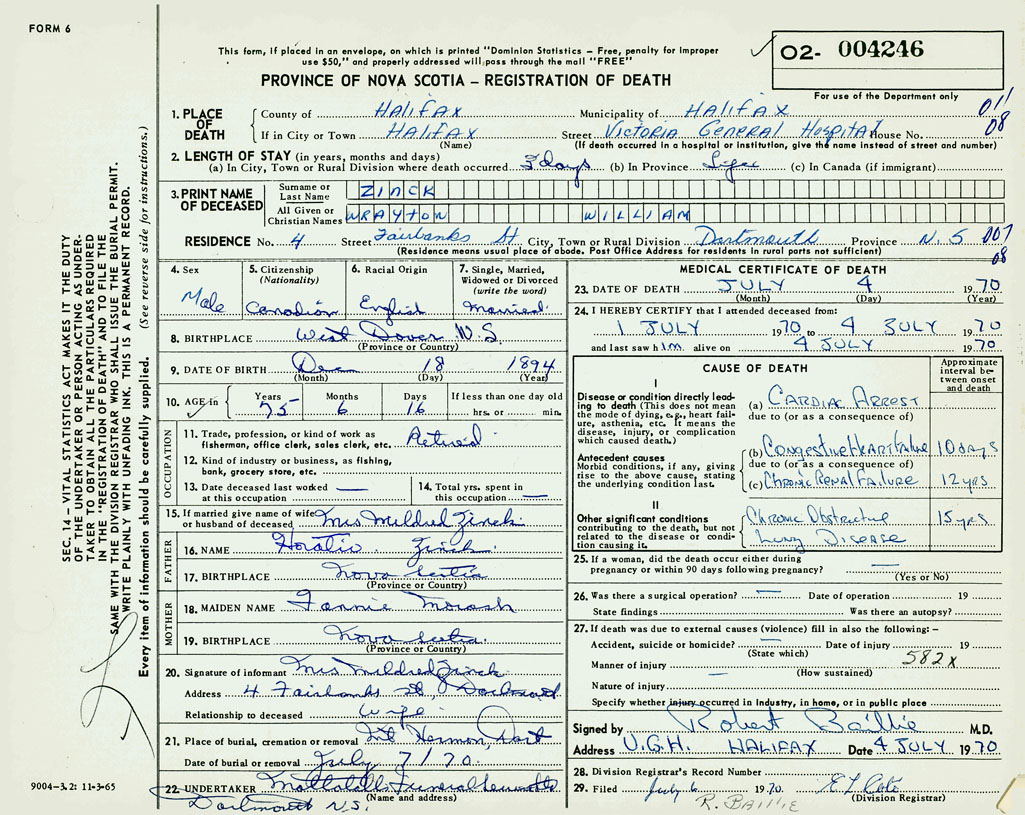 FORM 6
This form, if placed in an envelope, on which is printed "Dominion Statistics – Free, penalty for improper
use $50," and properly addressed will pass through the mail "FREE"
02- 004246
For use of the Department only
PROVINCE OF NOVA SCOTIA – REGISTRATION OF DEATH
1. PLACE OF DEATH
County of Halifax Municipality of Halifax 011
If in City or Town Halifax Street Victoria General Hospital House No. 08
(Name) (If death occurred in a hospital or institution, give the name instead of street and number)
2. LENGTH OF STAY (in years, months and days)
(a) In City, Town or Rural Division where death occurred 3 days (b) In Province Life (c) In Canada (if immigrant)
3. PRINT NAME OF DECEASED
Surname or Last Name ZINCK
All Given or Christian Names WRAYTON WILLIAM
RESIDENCE No. 4 Street Fairbanks St City, Town or Rural Division Dartmouth Province N.S. 007
(Residence means usual place of abode. Post Office Address for residents in rural parts not sufficient) 08
4. Sex
Male
5. Citizenship (Nationality)
Canadian
6. Racial Origin
English
7. Single, Married, Widowed or Divorced (write the word)
Married
8. BIRTHPLACE West Dover N.S.
(Province or Country)
9. DATE OF BIRTH Dec 18 1894
(Month) (Day) (Year)
10. AGE in Years 75 Months 6 Days 16 If less than one day old
hrs. or min.
OCCUPATION
11. Trade, profession, or kind of work as fisherman, office clerk, sales clerk, etc. Retired
12. Kind of industry or business, as fishing,
bank, grocery store, etc.
13. Date deceased last worked at this occupation —
14. Total yrs. spent in this occupation —
15. If married give name of wife or husband of deceased Mrs Mildred Zinck
FATHER
16. NAME Horatio Zinck
17. BIRTHPLACE Nova Scotia
(Province or Country)
MOTHER
18. MAIDEN NAME Fannie
19. BIRTHPLACE Nova Scotia
(Province or Country)
20. Signature of informant Mrs Mildred Zinck
Address 4 Fairbanks St, Dartmouth
Relationship to deceased wife
21. Place of burial, cremation or removal Mt Hermon, Dart
Date of burial or removal July 7/70.
22. UNDERTAKER Mattatalls Funeral
(Name and address)
Dartmouth N.S.
MEDICAL CERTIFICATE OF DEATH
23. DATE OF DEATH JULY 4 1970
(Month) (Day) (Year)
24. I HEREBY CERTIFY that I attended deceased from:
1 JULY 1970 to 4 JULY 1970
and last saw him alive on 4 JULY 1970
CAUSE OF DEATH
Approximate interval between onset and death
I
Disease or condition directly leading to death (This does not mean the mode of dying, e.g., heart failure, asthenia, etc. It means the disease, injury, or complication which caused death.)
(a) CARDIAC ARREST
due to (or as a consequence of)
Antecedent causes
Morbid conditions, if any, giving rise to the above cause, stating the underlying condition last.
(b) Congestive Heart Failure 10 days
due to (or as a consequence of)
(c) Chronic Renal Failure 12 yrs
II
Other significant conditions contributing to the death, but not related to the disease or condition causing it.
Chronic Obstructive 15 yrs
Lung Disease
25. If a woman, did the death occur either during
pregnancy or within 90 days following pregnancy? —
(Yes or No)
26. Was there a surgical operation? — Date of operation 19
State findings Was there an autopsy?
27. If death was due to external causes (violence) fill in also the following: –
Accident, suicide or homicide? — Date of injury 19
(State which) 582X
Manner of injury —
(How sustained)
Nature of injury
Specify whether injury occurred in industry, in home, or in public place
Signed by Robert Baillie M.D.
Address V.G.H. HALIFAX Date 4 JULY 1970
28. Division Registrar's Record Number
29. Filed July 6 1970.
(Division Registrar)
R. BAILLIE
SEC. 14 – VITAL STATISTICS ACT MAKES IT THE DUTY
OF THE UNDERTAKER OR PERSON ACTING AS UNDER-
TAKER TO OBTAIN ALL THE PARTICULARS REQUIRED
IN THE "REGISTRATION OF DEATH" AND TO FILE THE
SAME WITH THE DIVISION REGISTRAR WHO SHALL ISSUE THE BURIAL PERMIT.
WRITE PLAINLY WITH UNFADING INK. THIS IS A PERMANENT RECORD.
Every item of information should be carefully supplied. (See reverse side for instructions.)
9004-3.2: 11-3-65